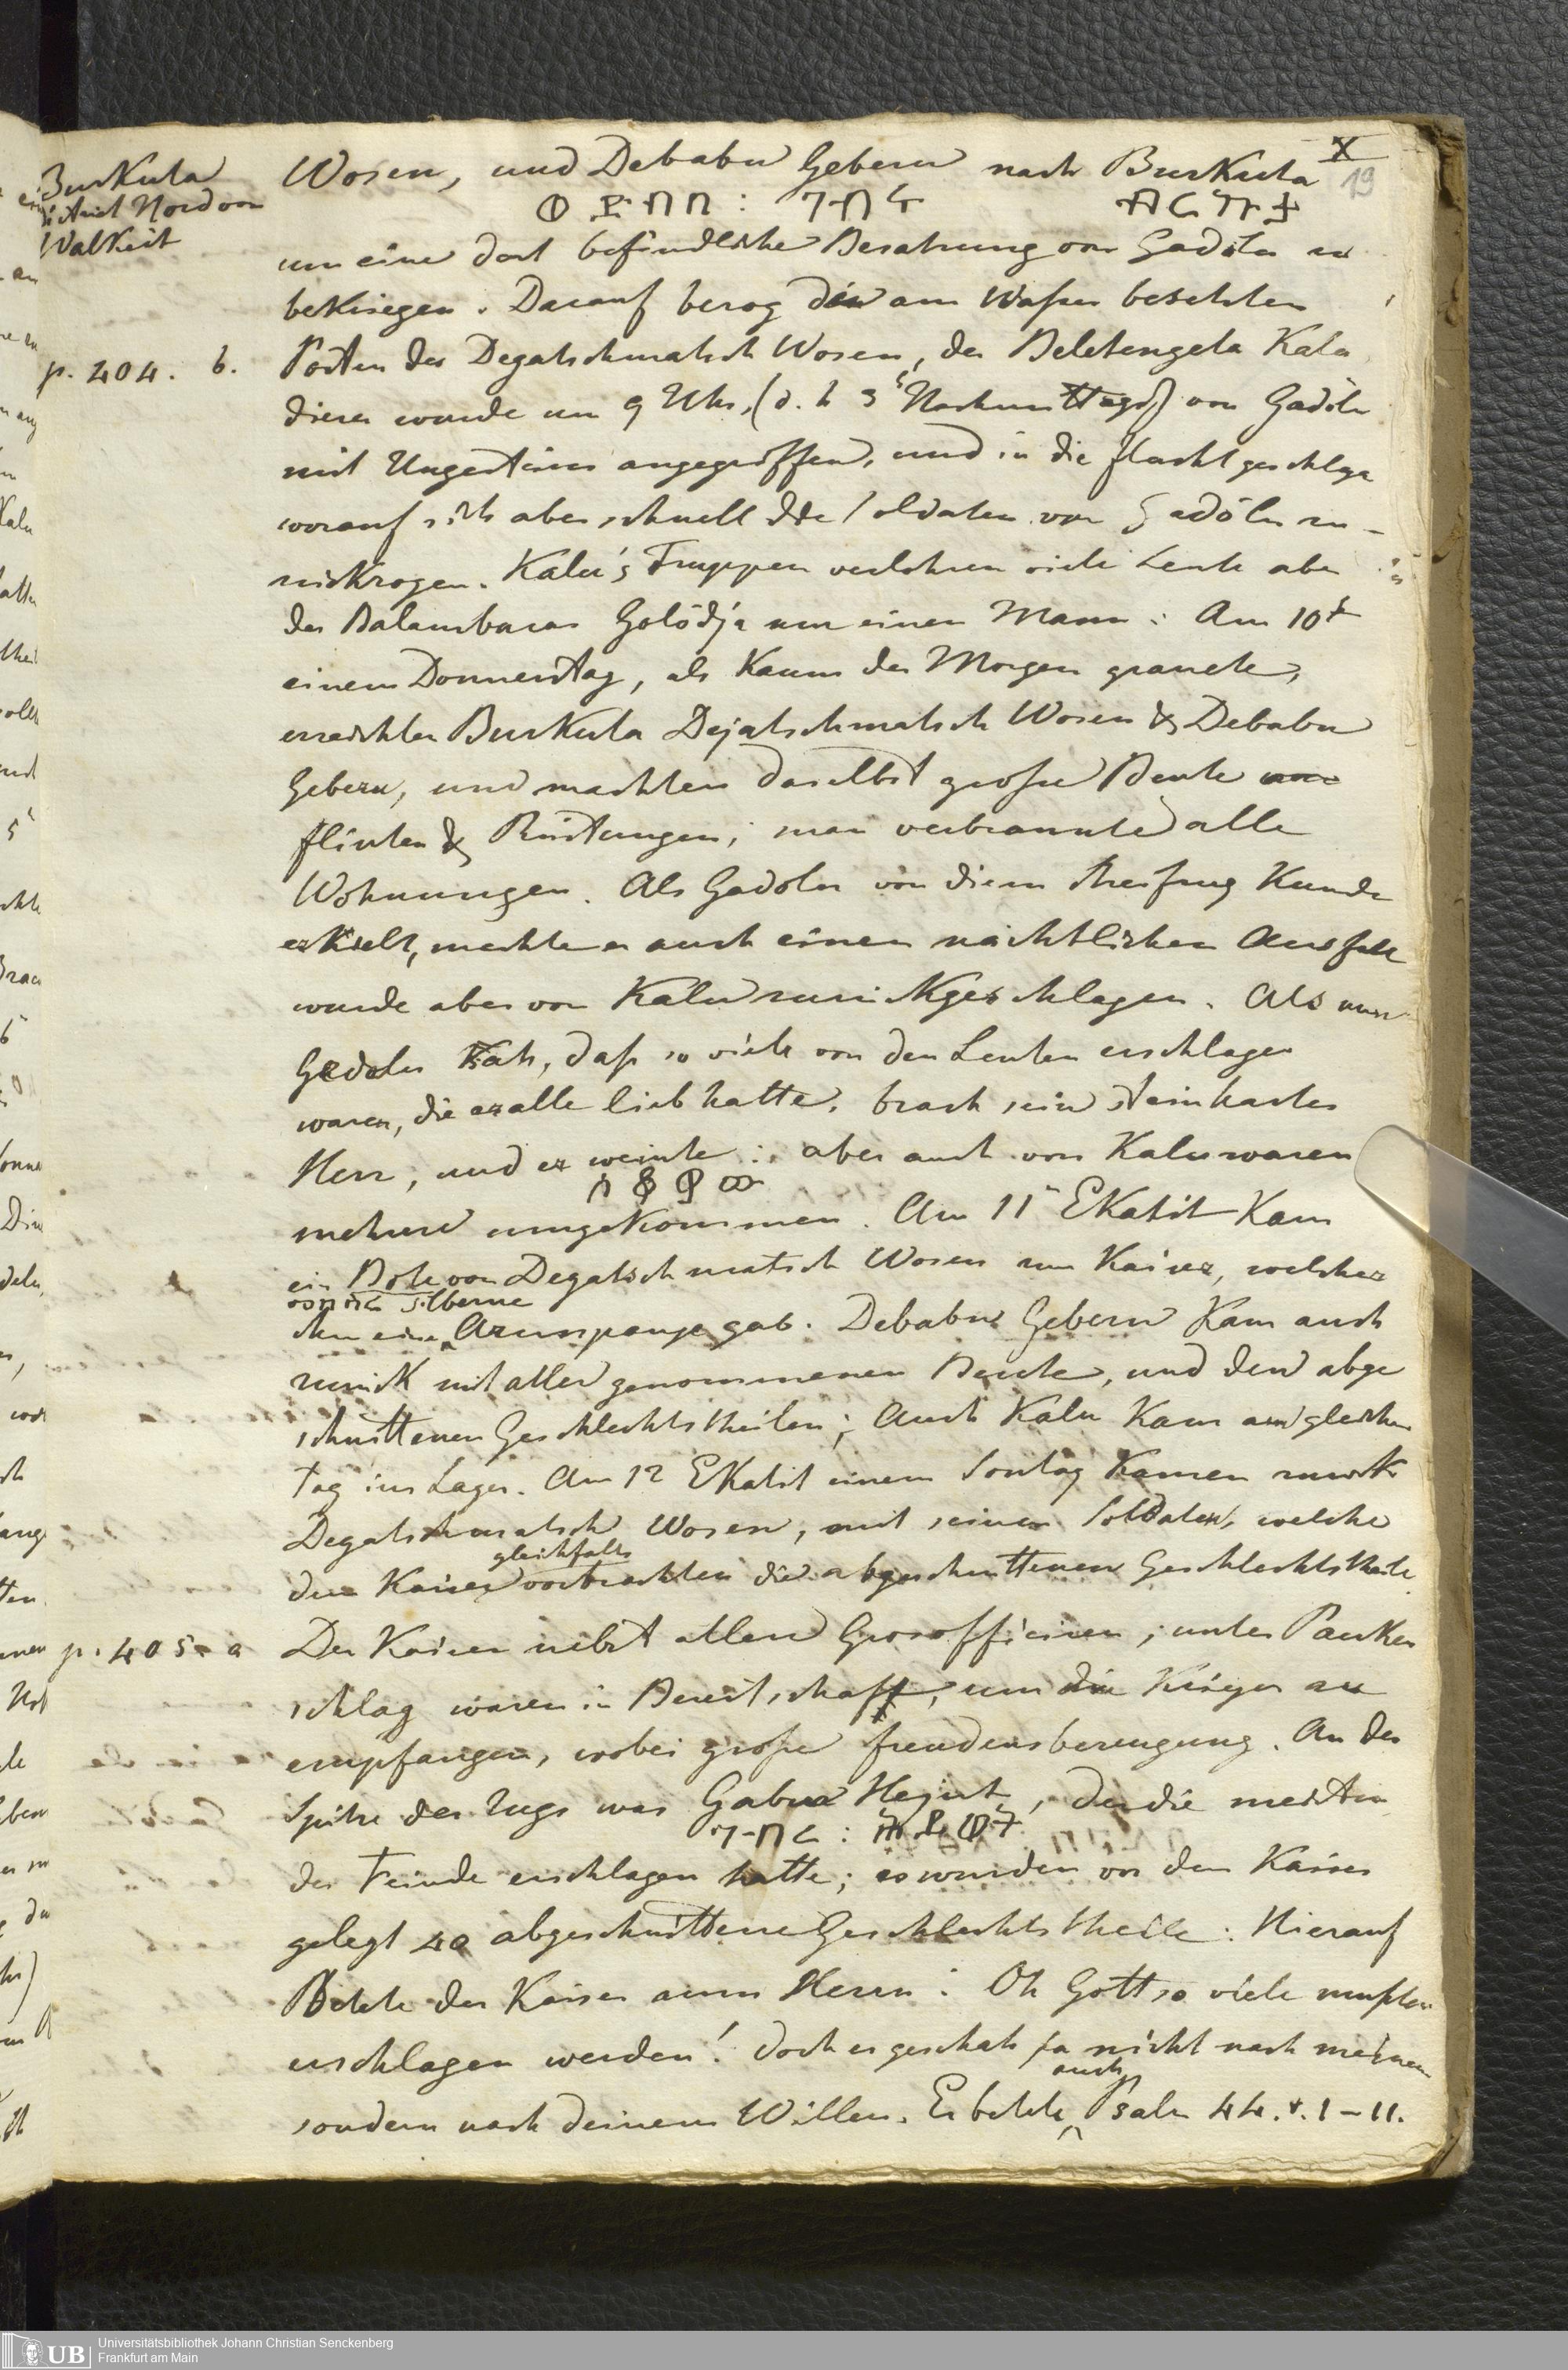 X
19
BurKuta
district Nord von
WalKeit
Wosen, und Debabu Gebern nach BurKuta
um eine dort befindliche Besatzung von Gadölu zu
beKriegen. Darauf bezog den am Wasser besetzten
p. 404. b. Posten des Degatschmatsch Wosen, der Beletengeta Kalu
dieser wurde um 9 Uhr, (d. h 3 Nachmittags) von Gadölu
mit Ungestüm angegriffen, und in die flucht geschlagen
worauf sich aber schnell die Soldaten von Gadölu zu-
rückzogen. Kalu's Truppen verlohren viele Leute aber
der Balambaras Golödja nur einen Mann: Am 10t
einem Donnerstag, als Kaum der Morgen grauete,
erreichten BurKuta Dejatschmatsch Wosen & Debabu
Gebern, und machten daselbst große Beute
flinten & Rüstungen; man verbrannte alle
Wohnungen. Als Gadolu von diesem Streifzug Kunde
erhielt, machte er auch einen nächtlichen Ausfall
wurde aber von Kalu zurückgeschlagen. Als nun
Gedolu sah, daß so viele von den Leuten erschlagen
waren, die er alle lieb hatte, brach sein steinhartes
Herz, und er weinte: aber auch von Kalu waren
mehrere umgekommen. Am 11 EKatit Kam
ein Bote von Degatschmatsch Wosen zum Kaiser, welcher
silberne
ihm eine Armspange gab. Debabu Gebern Kam auch
zurück mit aller genommenen Beute, und den abge
schnittenen Geschlechtstheilen; Auch Kalu Kam am gleichen
Tag ins Lager. Am 12 EKatit einem Sontag Kamen zurück
Degatschmatsch Wosen, mit seinen Soldaten, welche
gleichfalls
dem Kaiser vorbrachten die abgeschnittenen Geschlechtstheile
p. 405 a Der Kaiser nebst allen Grosofficiren, unter Pauken
schlag waren in Bereitschaft, um die Krieger zu
empfangen, wobei große freudensbezeugung. An der
Spitze des Zugs war Gabra Hejwt, der die meisten
der Feinde erschlagen hatte; es wurden vor dem Kaiser
gelegt 40 abgeschnittene Geschlechtstheile: Hierauf
Betete der Kaiser zum Herrn: Oh Gott so viele mußten
erschlagen werden! doch es geschah ja nicht nach meinem
auch
sondern nach deinem Willen. Er betete Psalm 44. v. 1–11.
UB
Universitätsbibliothek Johann Christian Senckenberg
Frankfurt am Main